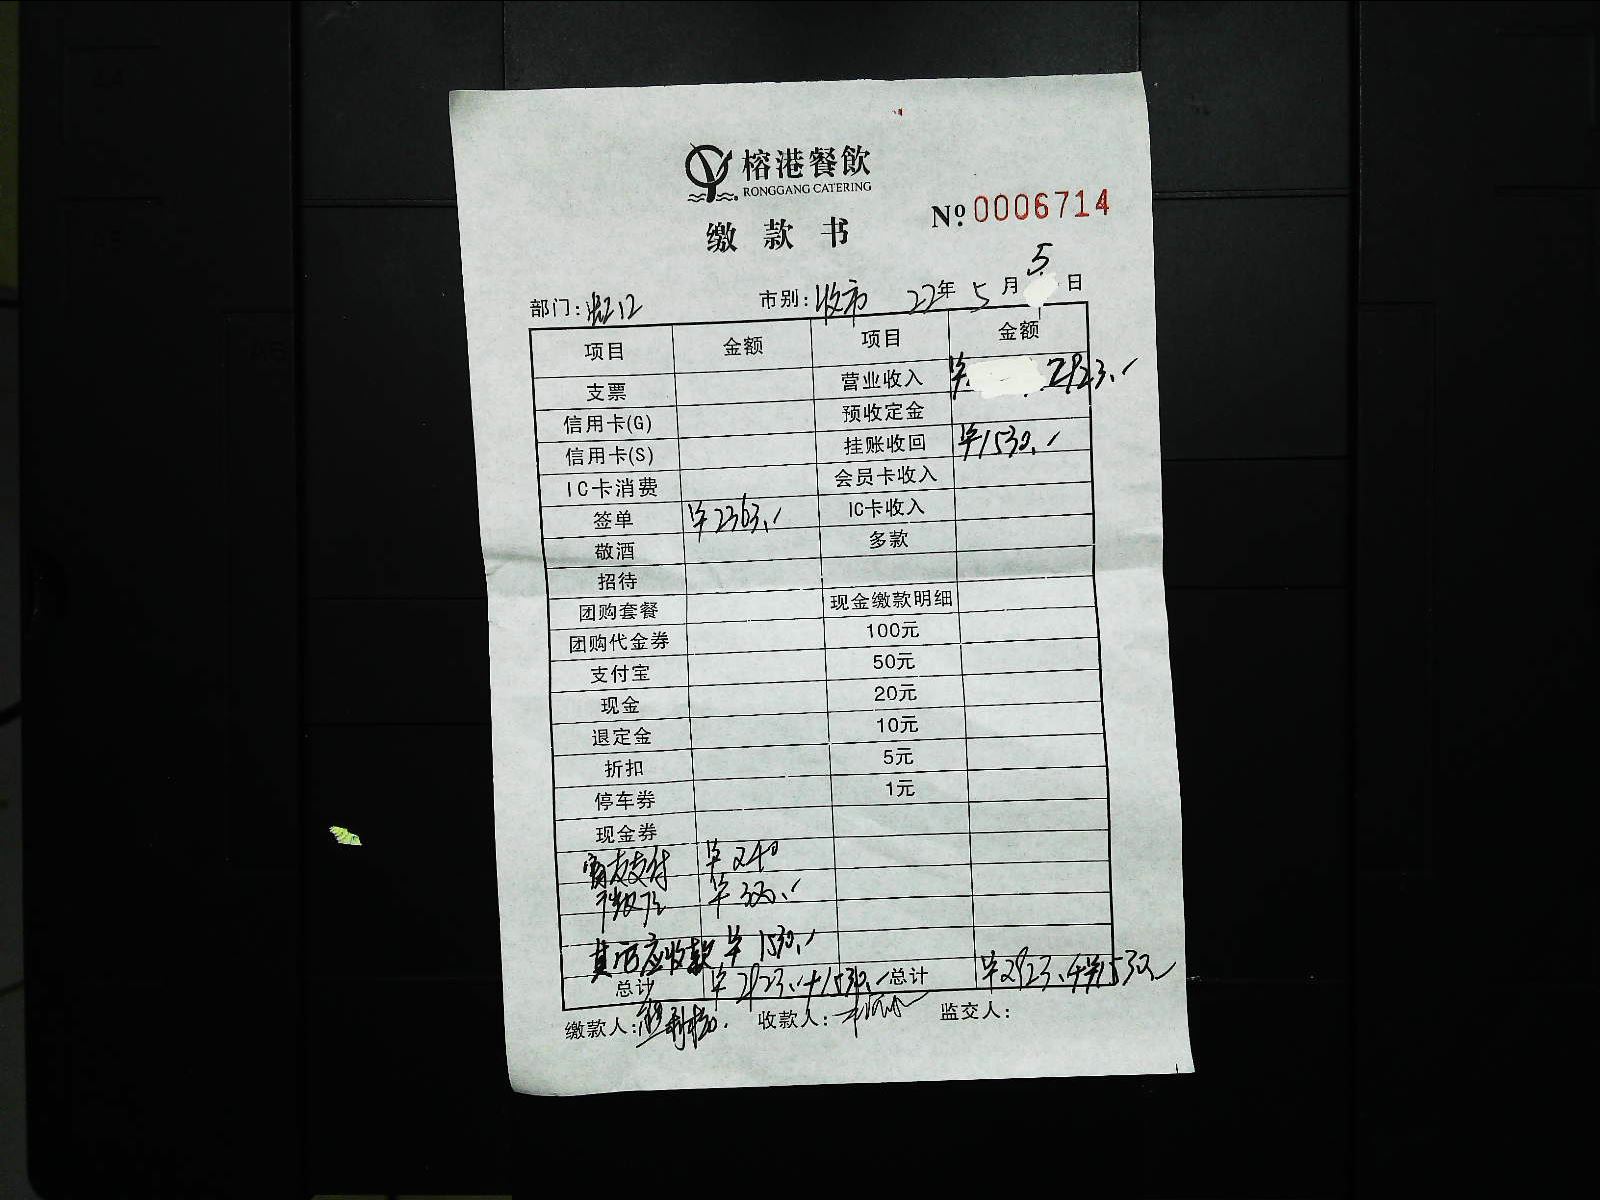 榕港餐飲
RONGGANG CATERING
缴款书
No. 0006714
部门: 市别: 收市 22年 5月 5日
项目 金额 项目 金额
支票 营业收入 ¥ 2923.
信用卡(G) 预收定金
信用卡(S) 挂账收回 ¥1530.
IC卡消费 会员卡收入
签单 ¥2363. IC卡收入
敬酒 多款
招待
团购套餐 现金缴款明细
团购代金券 100元
支付宝 50元
现金 20元
退定金 10元
折扣 5元
停车券 1元
现金券
支付 ¥240
¥320.
其它应收款 ¥1530.
总计 ¥2923.+1530. 总计 ¥2923.+¥1530
缴款人: 收款人: 监交人: